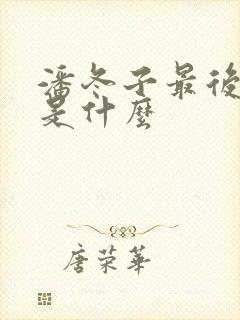 潘冬子最後
是什麼
唐荣華